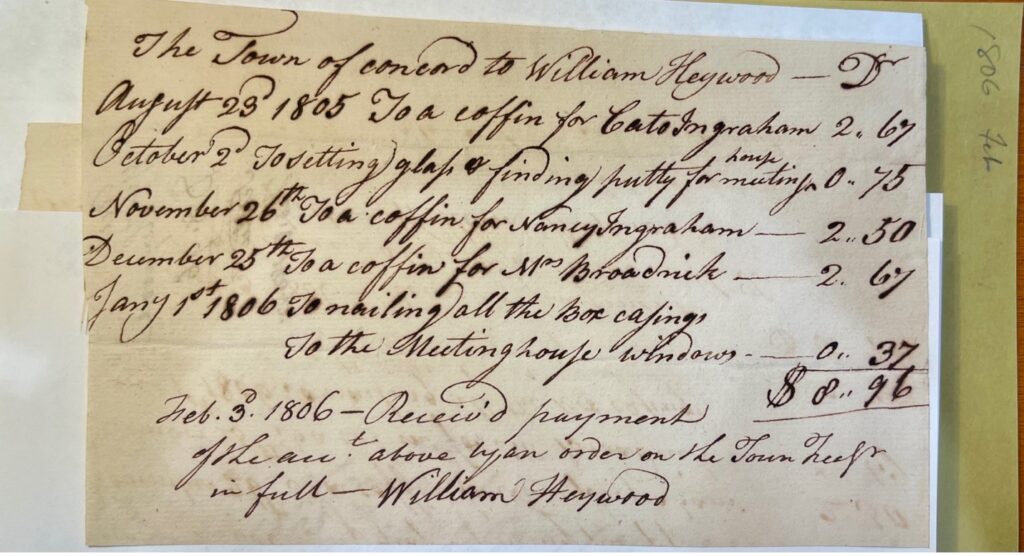 The Town of concord to William Heywood — Dr
August 23d 1805 To a coffin for Cato Ingraham 2.. 67
October 2d To setting glass & finding putty for meeting house 0.. 75
November 26th To a coffin for Nancy Ingraham — 2.. 50
December 25th To a coffin for Mrs Broadrick — 2. 67
Jany 1st 1806 To nailing all the Box casings
To the Meetinghouse windows - — 0.. 37
$ 8.. 96
Feb. 3d. 1806 — Receiv'd payment
of the acct. above by an order on the Town Treasr
in full — William Heywood
1806 Feb